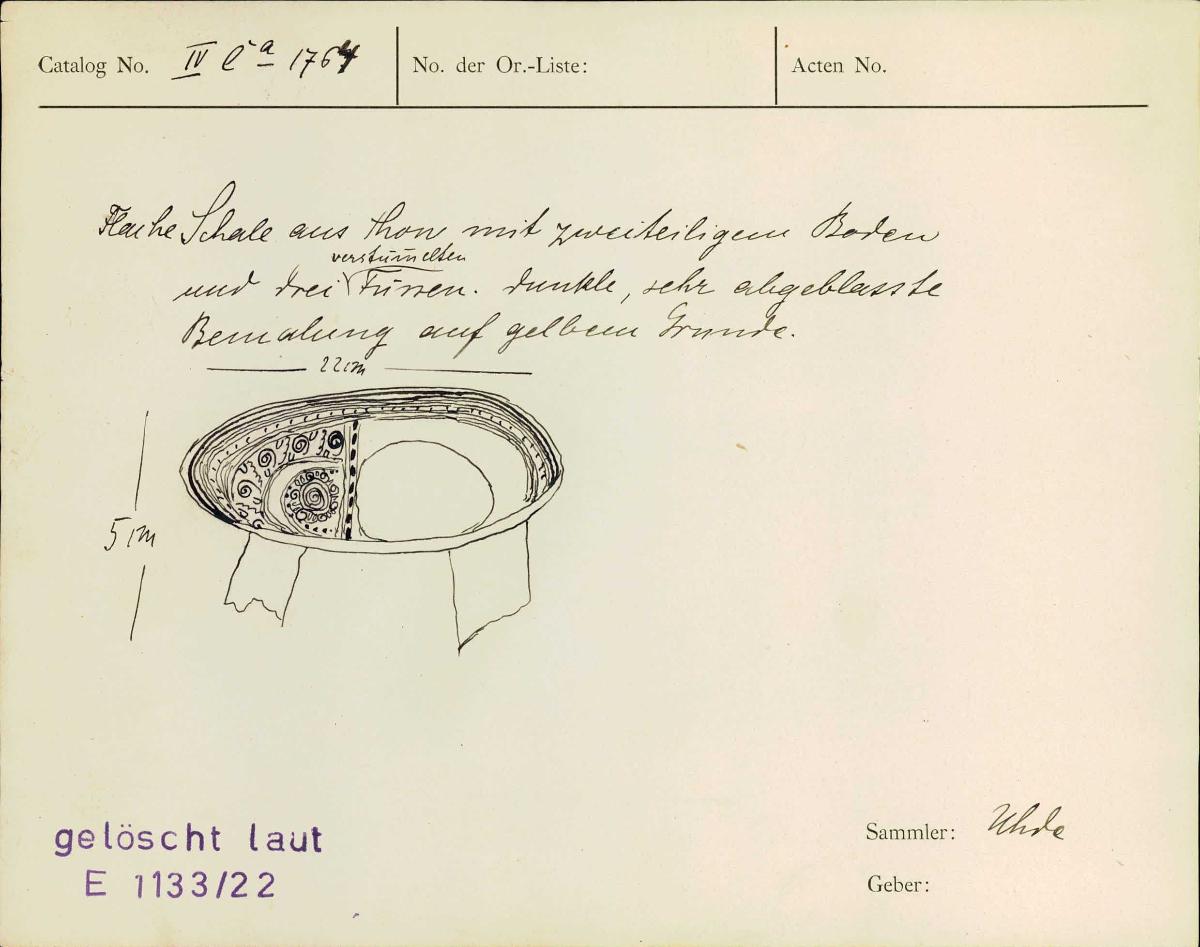 Catalog No. IV Ca 1764
No. der Or.-Liste:
Acten No.
Flache Schale aus Thon mit zweiteiligem Boden
verstümelten
und drei Füssen. dunkle, sehr abgeblasste
Bemalung auf gelbem Grunde.
22cm
5cm
gelöscht laut
E 1133/22
Sammler: Uhde
Geber: